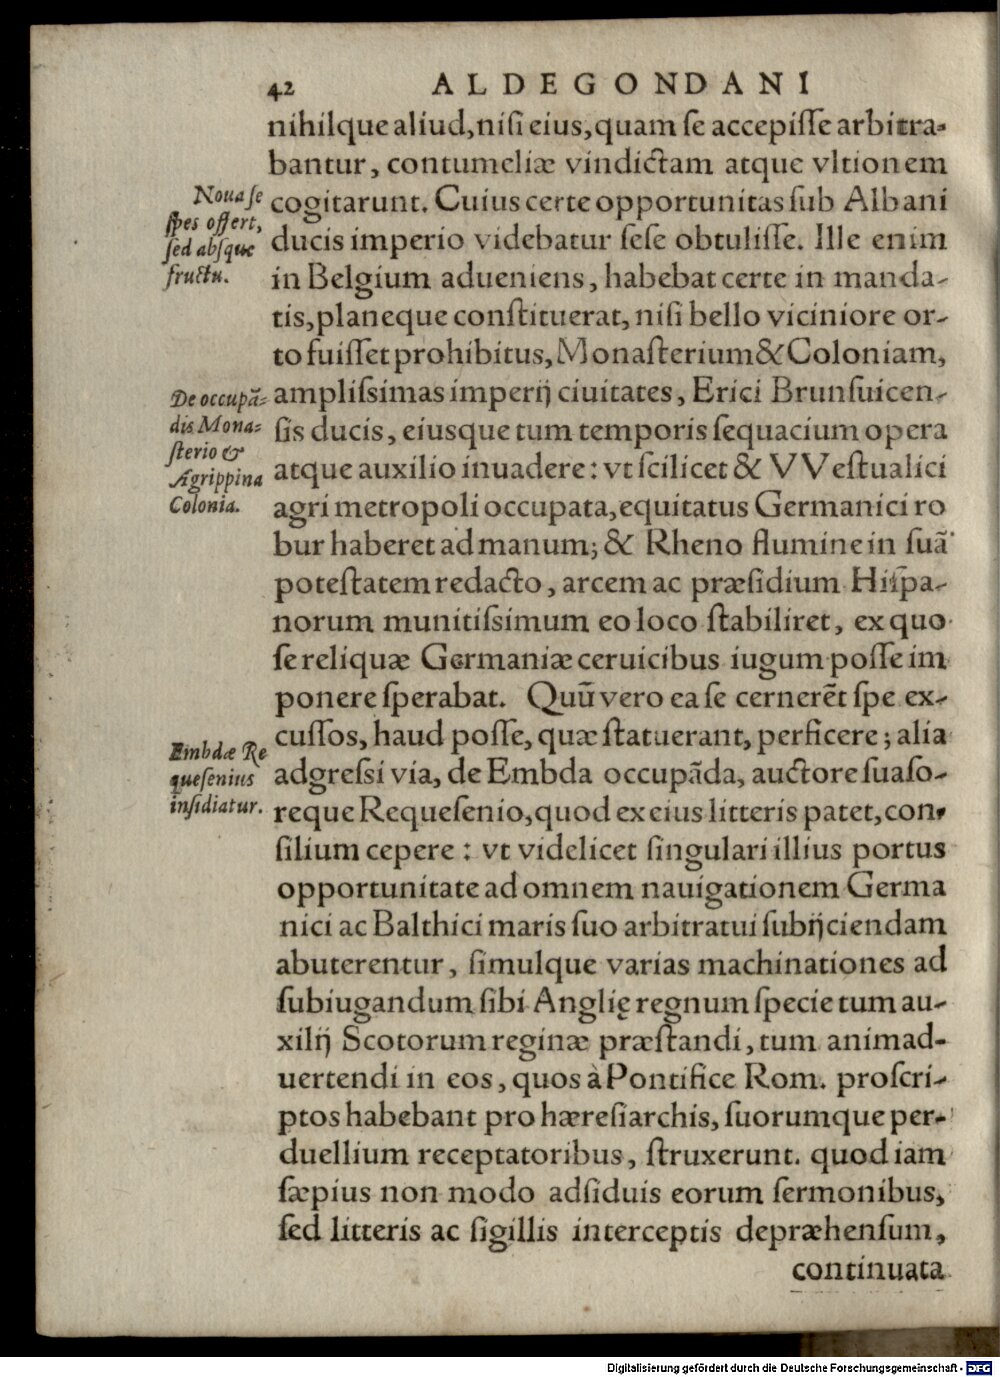 42 ALDEGONDANI
nihilque aliud, niſi eius, quam ſe accepiſſe arbitra-
bantur, contumeliæ vindictam atque vltionem
Noua ſe
ſpes offert,
ſed abſque
fructu.
cogitarunt. Cuius certe opportunitas ſub Albani
ducis imperio videbatur ſeſe obtuliſſe. Ille enim
in Belgium adueniens, habebat certe in manda-
tis, planeque conſtituerat, niſi bello viciniore or-
to fuiſſet prohibitus, Monaſterium & Coloniam,
De occupã-
dis Mona-
ſterio &
Agrippina
Colonia.
ampliſsimas imperij ciuitates, Erici Brunſuicen-
ſis ducis, eiusque tum temporis ſequacium opera
atque auxilio inuadere: vt ſcilicet & VVeſtualici
agri metropoli occupata, equitatus Germanici ro
bur haberet ad manum; & Rheno flumine in ſuã
poteſtatem redacto, arcem ac præſidium Hiſpa-
norum munitiſsimum eo loco ſtabiliret, ex quo
ſe reliquæ Germaniæ ceruicibus iugum poſſe im
ponere ſperabat. Quũ vero ea ſe cernerẽt ſpe ex-
Embdæ Re
queſenius
inſidiatur.
cuſſos, haud poſſe, quæ ſtatuerant, perficere; alia
adgreſsi via, de Embda occupãda, auctore ſuaſo-
reque Requeſenio, quod ex eius litteris patet, con-
ſilium cepere: vt videlicet ſingulari illius portus
opportunitate ad omnem nauigationem Germa
nici ac Balthici maris ſuo arbitratui ſubijciendam
abuterentur, ſimulque varias machinationes ad
ſubiugandum ſibi Anglię regnum ſpecie tum au-
xilij Scotorum reginæ præſtandi, tum animad-
uertendi in eos, quos à Pontifice Rom. proſcri-
ptos habebant pro hæreſiarchis, ſuorumque per-
duellium receptatoribus, ſtruxerunt. quod iam
ſæpius non modo adſiduis eorum ſermonibus,
ſed litteris ac ſigillis interceptis depræhenſum,
continuata
Digitalisierung gefördert durch die Deutsche Forschungsgemeinschaft - DFG